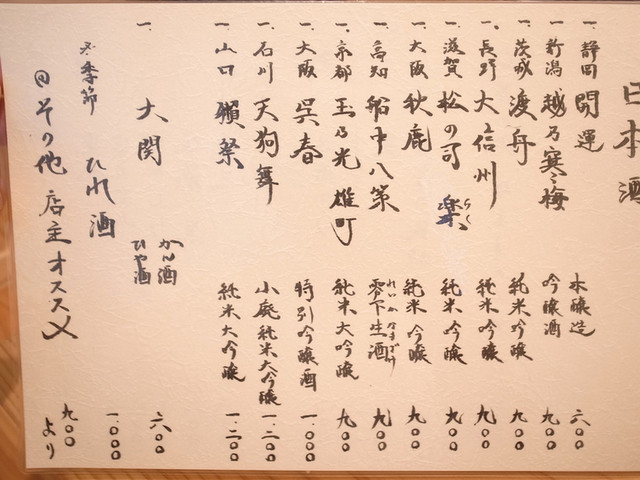 日本酒
一、静岡 開運 本醸造 六〇〇
一、新潟 越乃寒梅 吟醸酒 九〇〇
一、茨城 渡舟 純米吟醸 九〇〇
一、長野 大信州 純米吟醸 九〇〇
一、滋賀 松の司 楽 らく 純米吟醸 九〇〇
一、大阪 秋鹿 純米吟醸 九〇〇
一、高知 船中八策 零下生酒 れいかなまざけ 九〇〇
一、京都 玉乃光 雄町 純米大吟醸 九〇〇
一、大阪 呉春 特別吟醸酒 一、〇〇〇
一、石川 天狗舞 小廐純米大吟醸 一、二〇〇
一、山口 獺祭 純米大吟醸 一、二〇〇
一、大関 かん酒 ひや酒 六〇〇
冬季節 ひれ酒 一、〇〇〇
日その他 店主オススメ 九〇〇より